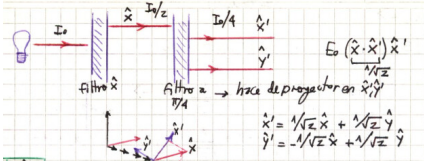 I₀
x̂
I₀/2
I₀/4
x̂'
ŷ'
E₀ (x̂·x̂') x̂'
1/√2
filtro x̂
filtro a π/4 → hace de proyector en x̂'ŷ'
x̂' = 1/√2 x̂ + 1/√2 ŷ
ŷ' = -1/√2 x̂ + 1/√2 ŷ
ŷ'
x̂'
x̂